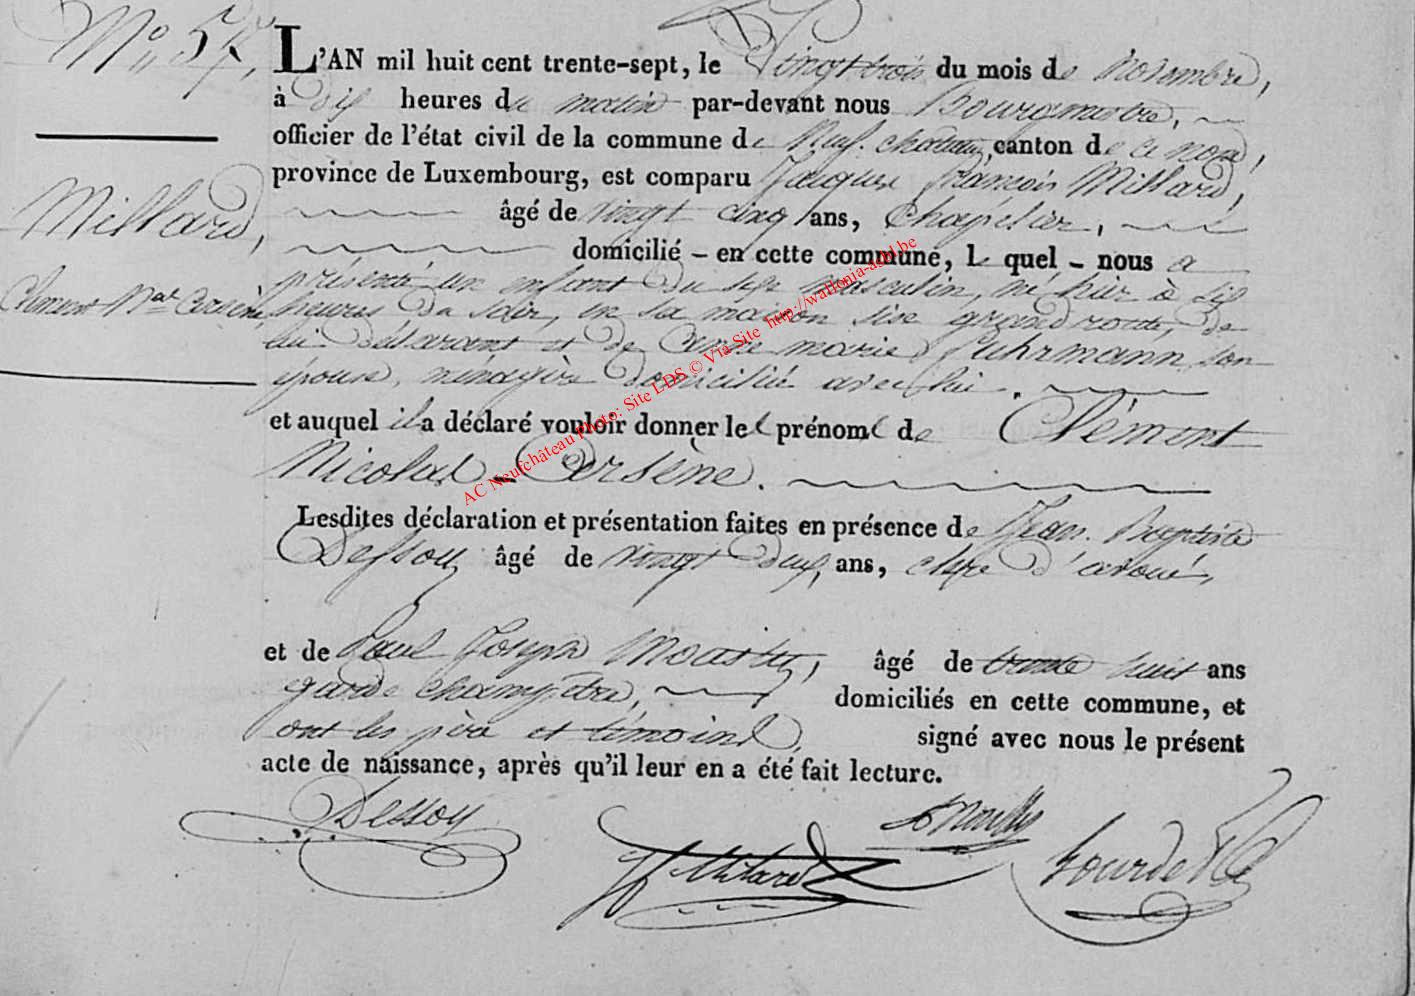 N° 57,
L'AN mil huit cent trente-sept, le Vingt trois du mois de Novembre,
à dix heures du matin par-devant nous Bourgmestre,
officier de l'état civil de la commune de Neufchateau, canton de ce nom,
province de Luxembourg, est comparu Jacques François Millard,
âgé de vingt cinq ans, Chapelier,
domicilié – en cette commune, Le quel – nous a
présenté un enfant du sexe masculin, né hier à six
heures du soir, en sa maison sise grand route, de
lui déclarant et de Anne marie Fuhrmann, son
épouse, ménagère domiciliée avec lui.
et auquel il a déclaré vouloir donner les prénoms de Clément
Nicolas – Arsène.
Lesdites déclaration et présentation faites en présence de Jean Baptiste
Dessoy âgé de vingt deux ans, clerc d'avoué,
et de Paul Joseph âgé de trente huit ans
garde champêtre, domiciliés en cette commune, et
ont les père et témoins, signé avec nous le présent
acte de naissance, après qu'il leur en a été fait lecture.
Millard,
Clément Nas Arsène,
Dessoy
JF Milard
AC Neufchâteau Photo: Site LDS © Via Site http://wallonia-asbl.be